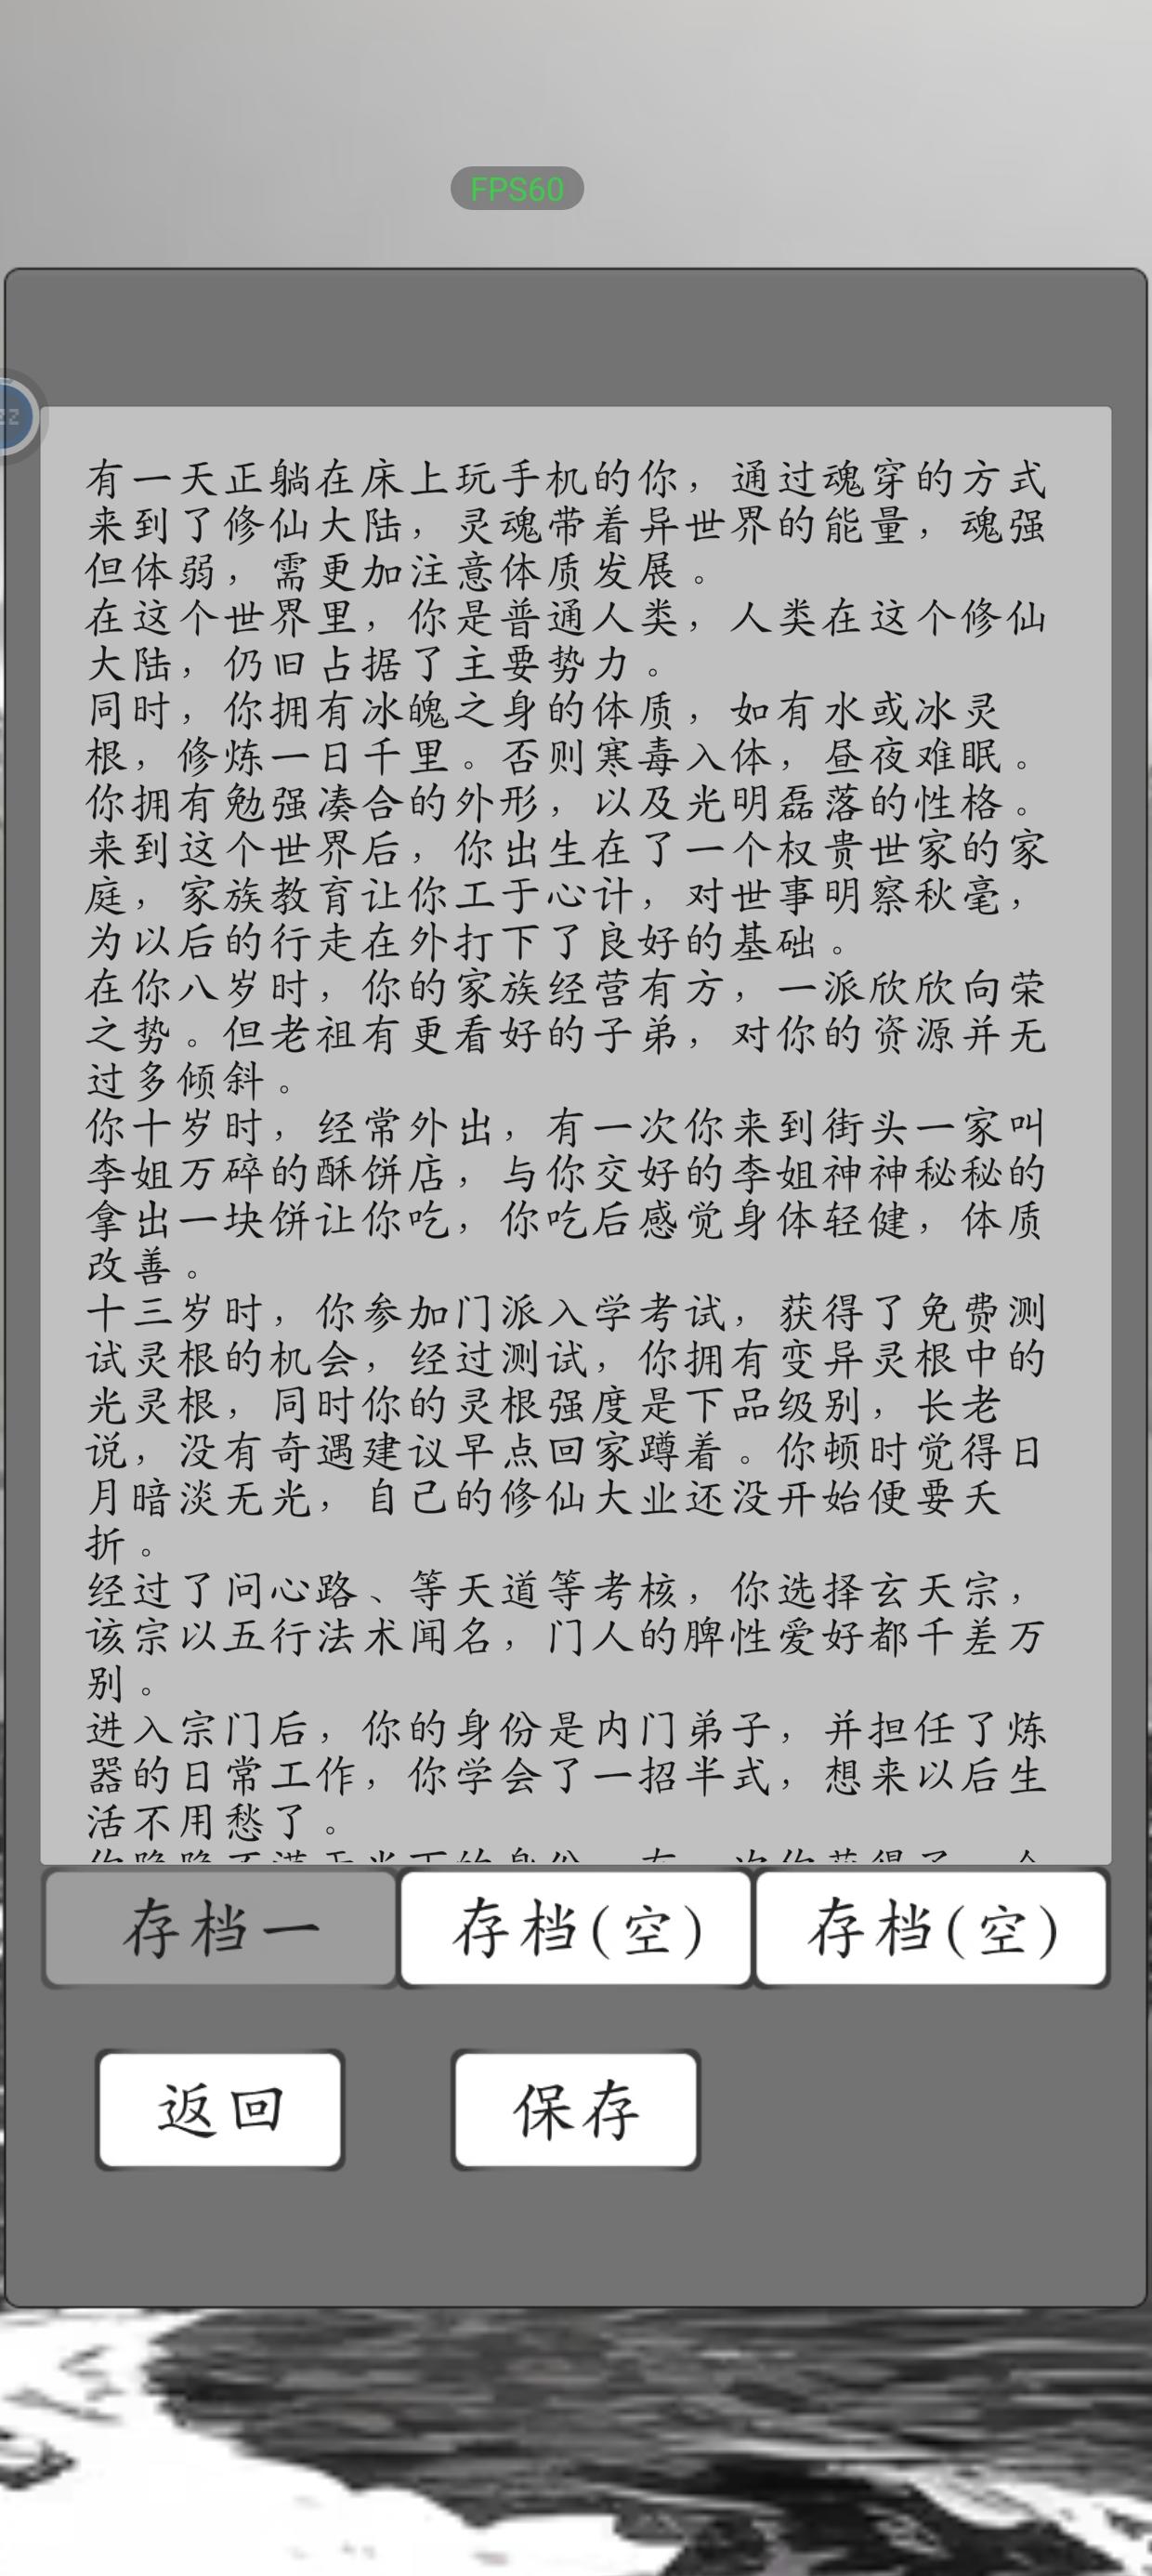 FPS60
zz
有一天正躺在床上玩手机的你，通过魂穿的方式
来到了修仙大陆，灵魂带着异世界的能量，魂强
但体弱，需更加注意体质发展。
在这个世界里，你是普通人类，人类在这个修仙
大陆，仍旧占据了主要势力。
同时，你拥有冰魄之身的体质，如有水或冰灵
根，修炼一日千里。否则寒毒入体，昼夜难眠。
你拥有勉强凑合的外形，以及光明磊落的性格。
来到这个世界后，你出生在了一个权贵世家的家
庭，家族教育让你工于心计，对世事明察秋毫，
为以后的行走在外打下了良好的基础。
在你八岁时，你的家族经营有方，一派欣欣向荣
之势。但老祖有更看好的子弟，对你的资源并无
过多倾斜。
你十岁时，经常外出，有一次你来到街头一家叫
李姐万碎的酥饼店，与你交好的李姐神神秘秘的
拿出一块饼让你吃，你吃后感觉身体轻健，体质
改善。
十三岁时，你参加门派入学考试，获得了免费测
试灵根的机会，经过测试，你拥有变异灵根中的
光灵根，同时你的灵根强度是下品级别，长老
说，没有奇遇建议早点回家蹲着。你顿时觉得日
月暗淡无光，自己的修仙大业还没开始便要夭
折。
经过了问心路、等天道等考核，你选择玄天宗，
该宗以五行法术闻名，门人的脾性爱好都千差万
别。
进入宗门后，你的身份是内门弟子，并担任了炼
器的日常工作，你学会了一招半式，想来以后生
活不用愁了。
存档一 存档(空) 存档(空)
返回 保存